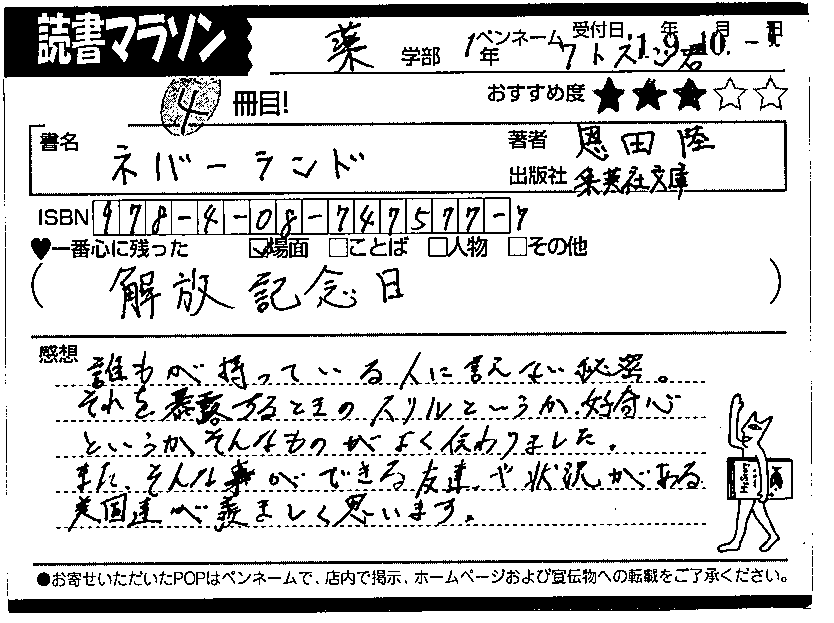 読書マラソン
薬 学部 1年 ペンネーム ワトスン君 受付日 '1 9年 10月 -1日
4 冊目! おすすめ度 ★★★☆☆
書名 ネバーランド
著者 恩田陸
出版社 集英社文庫
ISBN 978-4-08-747577-7
♥一番心に残った ☑場面 □ことば □人物 □その他
(解放記念日)
感想 誰もが持っている人に言えない秘密。
それを暴露するときのスリルというか、好奇心
というか、そんなものがよく伝わりました。
また、そんな事ができる友達や状況がある
美国達が羨ましく思います。
●お寄せいただいたPOPはペンネームで、店内で掲示、ホームページおよび宣伝物への転載をご了承ください。